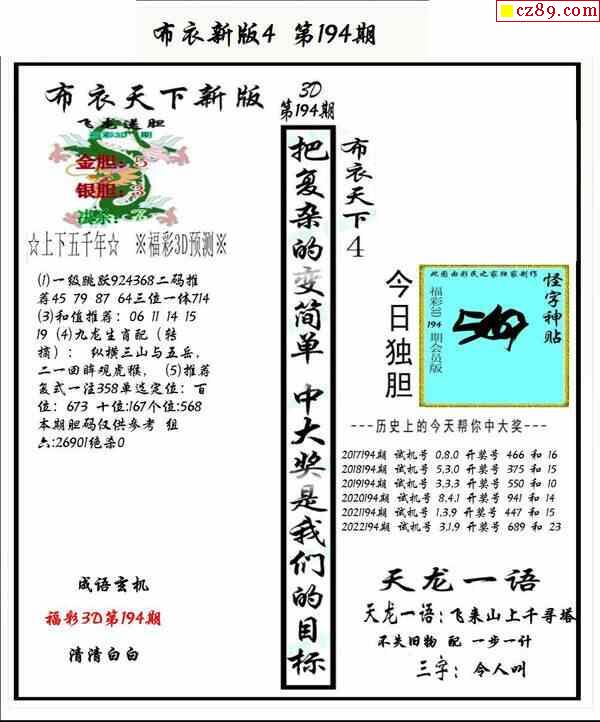 cz89.com
布衣新版4 第194期
布衣天下新版
飞龙送胆
福彩3D 期
金胆：5
银胆：3
☆上下五千年☆ ※福彩3D预测※
(1)一级跳跃924368二码推
荐45 79 87 64三位一体714
(3)和值推荐：06 11 14 15
19 (4)九龙生肖配（转
摘）：纵横三山与五岳，
二一回眸观虎猴，(5)推荐
复式一注358单选定位：百
位：673 十位:167个位:568
本期胆码仅供参考 组
六:26901绝杀0
成语玄机
福彩3D第194期
清清白白
3D
第194期
把复杂的变简单 中大奖是我们的目标
布衣天下4
今日独胆
此图由彩民之家独家制作
福彩3D 194 期会员版
怪字神贴
---历史上的今天帮你中大奖---
2017194期 试机号 0.8.0 开奖号 466 和 16
2018194期 试机号 5.3.0 开奖号 375 和 15
2019194期 试机号 3.3.3 开奖号 550 和 10
2020194期 试机号 8.4.1 开奖号 941 和 14
2021194期 试机号 1.3.9 开奖号 447 和 15
2022194期 试机号 3.1.9 开奖号 689 和 23
天龙一语
天龙一语：飞来山上千寻塔
不失旧物 配 一步一计
三字：令人叫